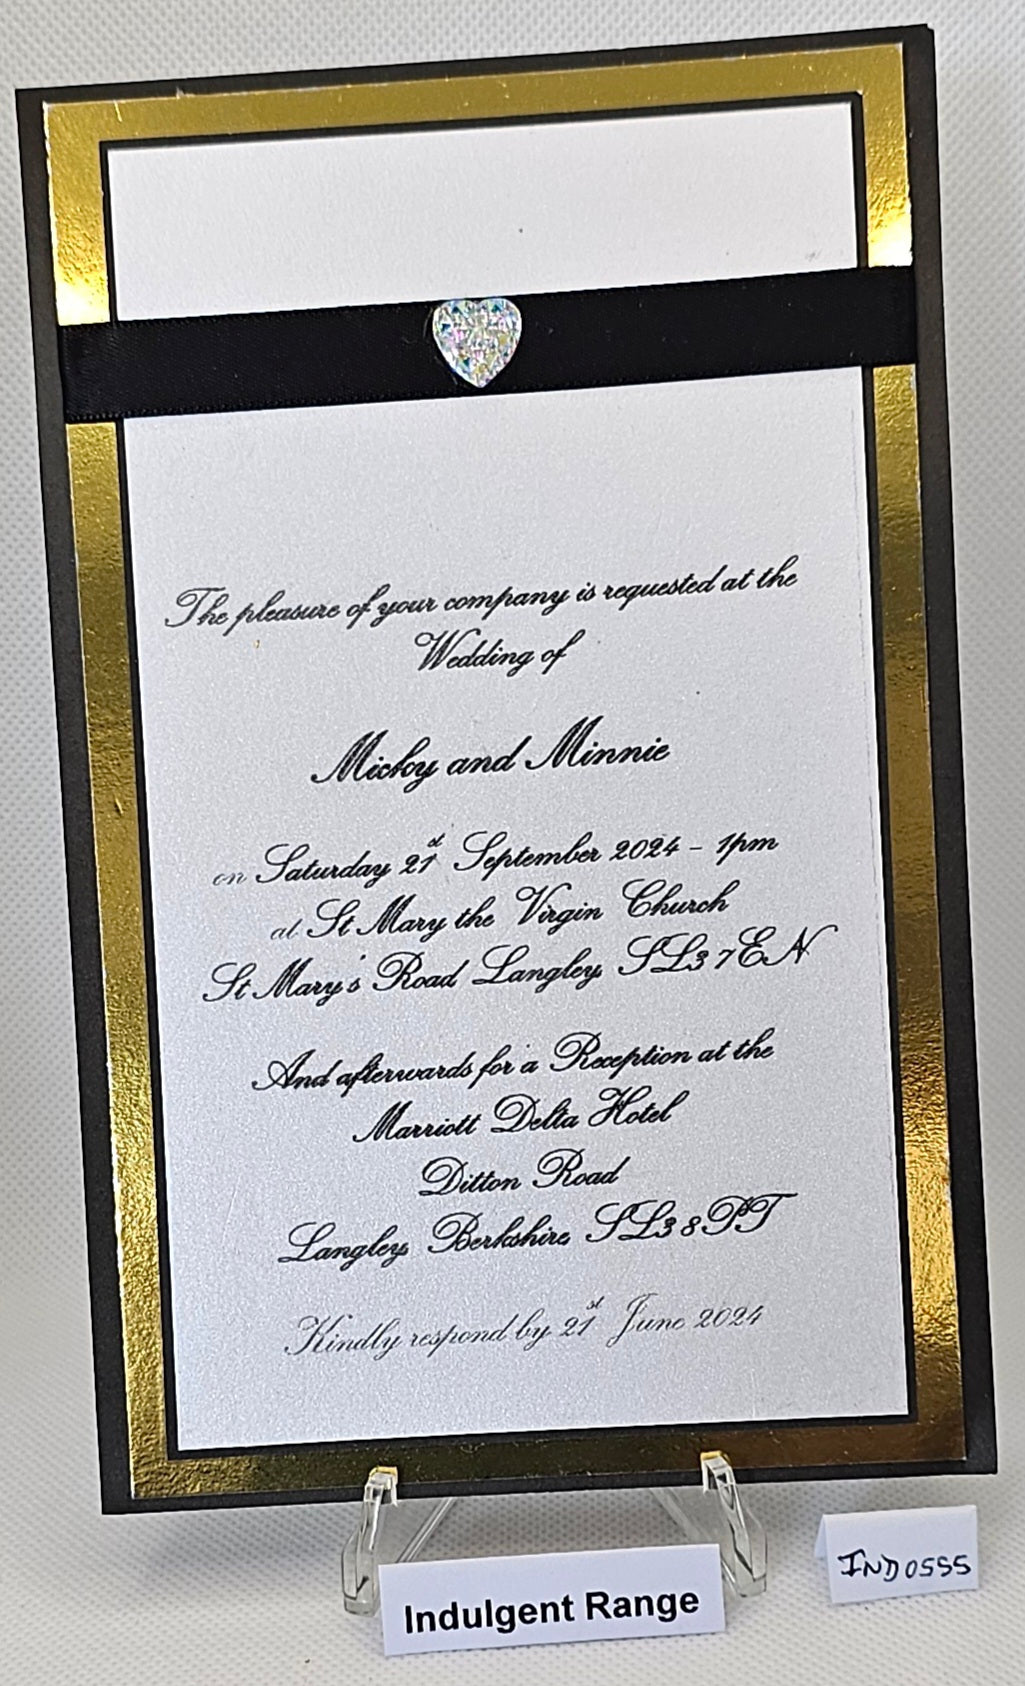 The pleasure of your company is requested at the
Wedding of
Micky and Minnie
on Saturday 21st September 2024 - 1pm
at St Mary the Virgin Church
St Mary's Road Langley SL3 7EN
And afterwards for a Reception at the
Marriott Delta Hotel
Ditton Road
Langley Berkshire SL3 8PT
Kindly respond by 21st June 2024
Indulgent Range
IND0555